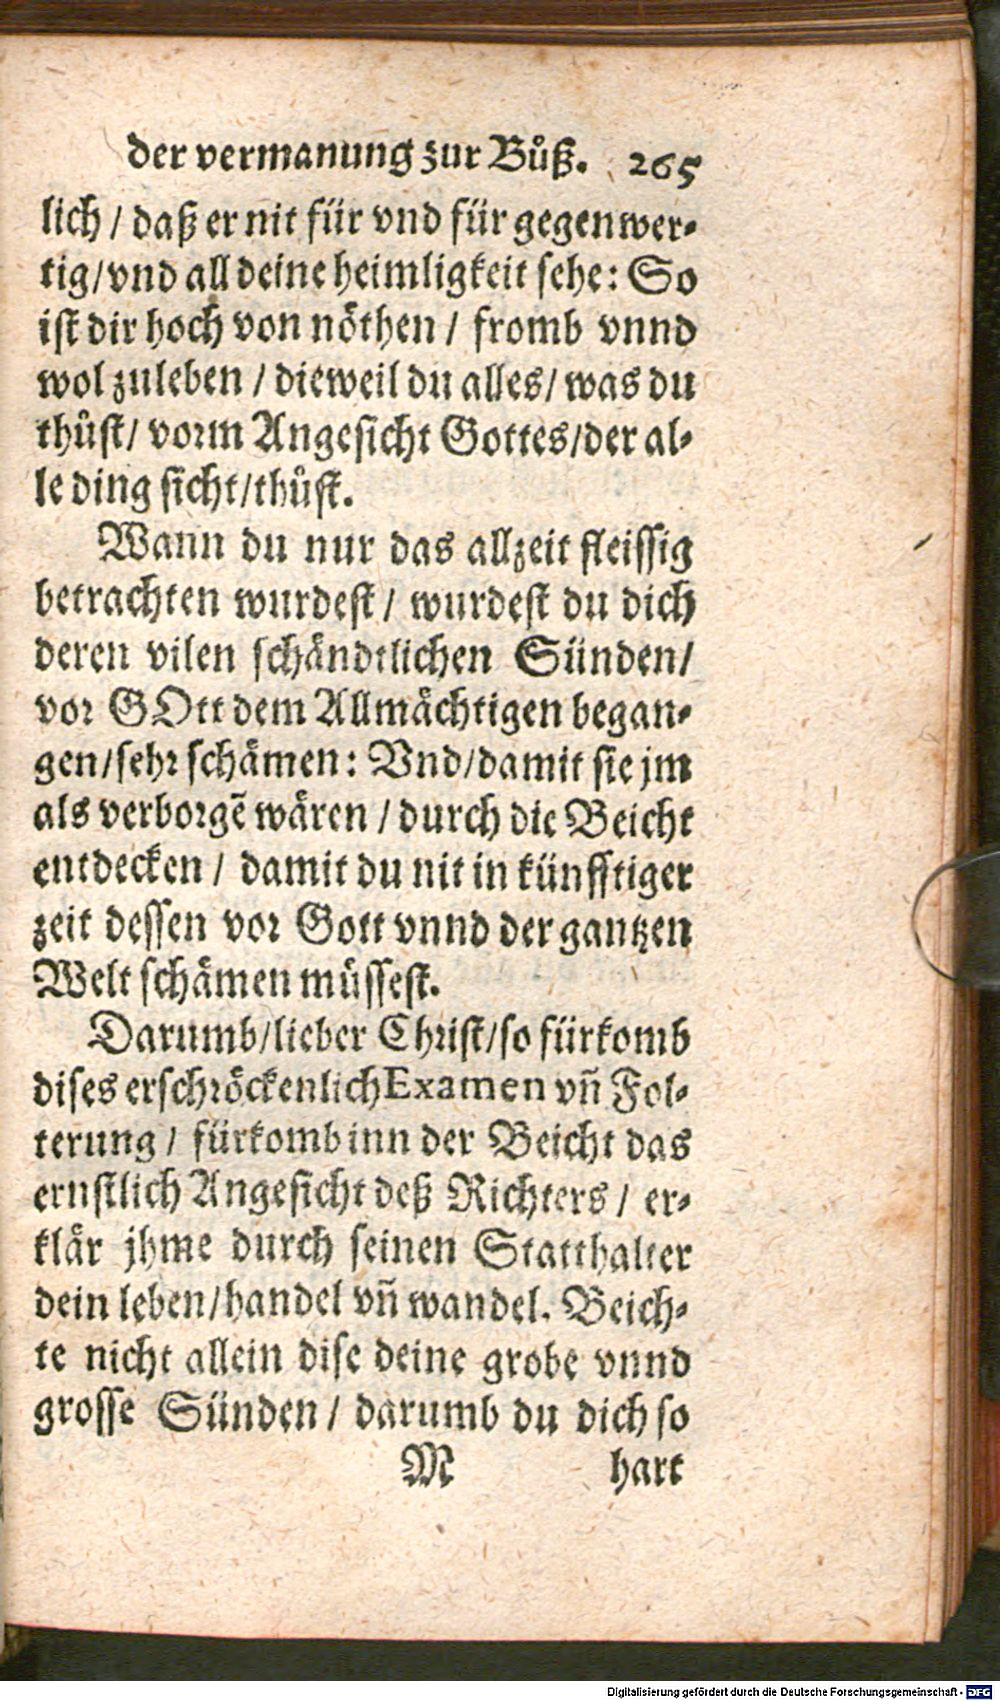 der vermanung zur Bůß. 265
lich / daß er nit für vnd für gegenwer-
tig/vnd all deine heimligkeit sehe: So
ist dir hoch von nöthen / fromb vnnd
wol zuleben / dieweil du alles/ was du
thůst/ vorm Angesicht Gottes/der al-
le ding sicht/thůst.
Wann du nur das allzeit fleissig
betrachten wurdest / wurdest du dich
deren vilen schändtlichen Sünden/
vor GOtt dem Allmächtigen began-
gen/sehr schämen: Vnd/damit sie jm
als verborgẽ wären / durch die Beicht
entdecken / damit du nit in künfftiger
zeit dessen vor Gott vnnd der gantzen
Welt schämen müssest.
Darumb/lieber Christ/so fürkomb
dises erschröckenlich Examen vñ Fol-
terung / fürkomb inn der Beicht das
ernstlich Angesicht deß Richters / er-
klär jhme durch seinen Statthalter
dein leben/handel vñ wandel. Beich-
te nicht allein dise deine grobe vnnd
grosse Sünden / darumb du dich so
M hart
Digitalisierung gefördert durch die Deutsche Forschungsgemeinschaft - DFG